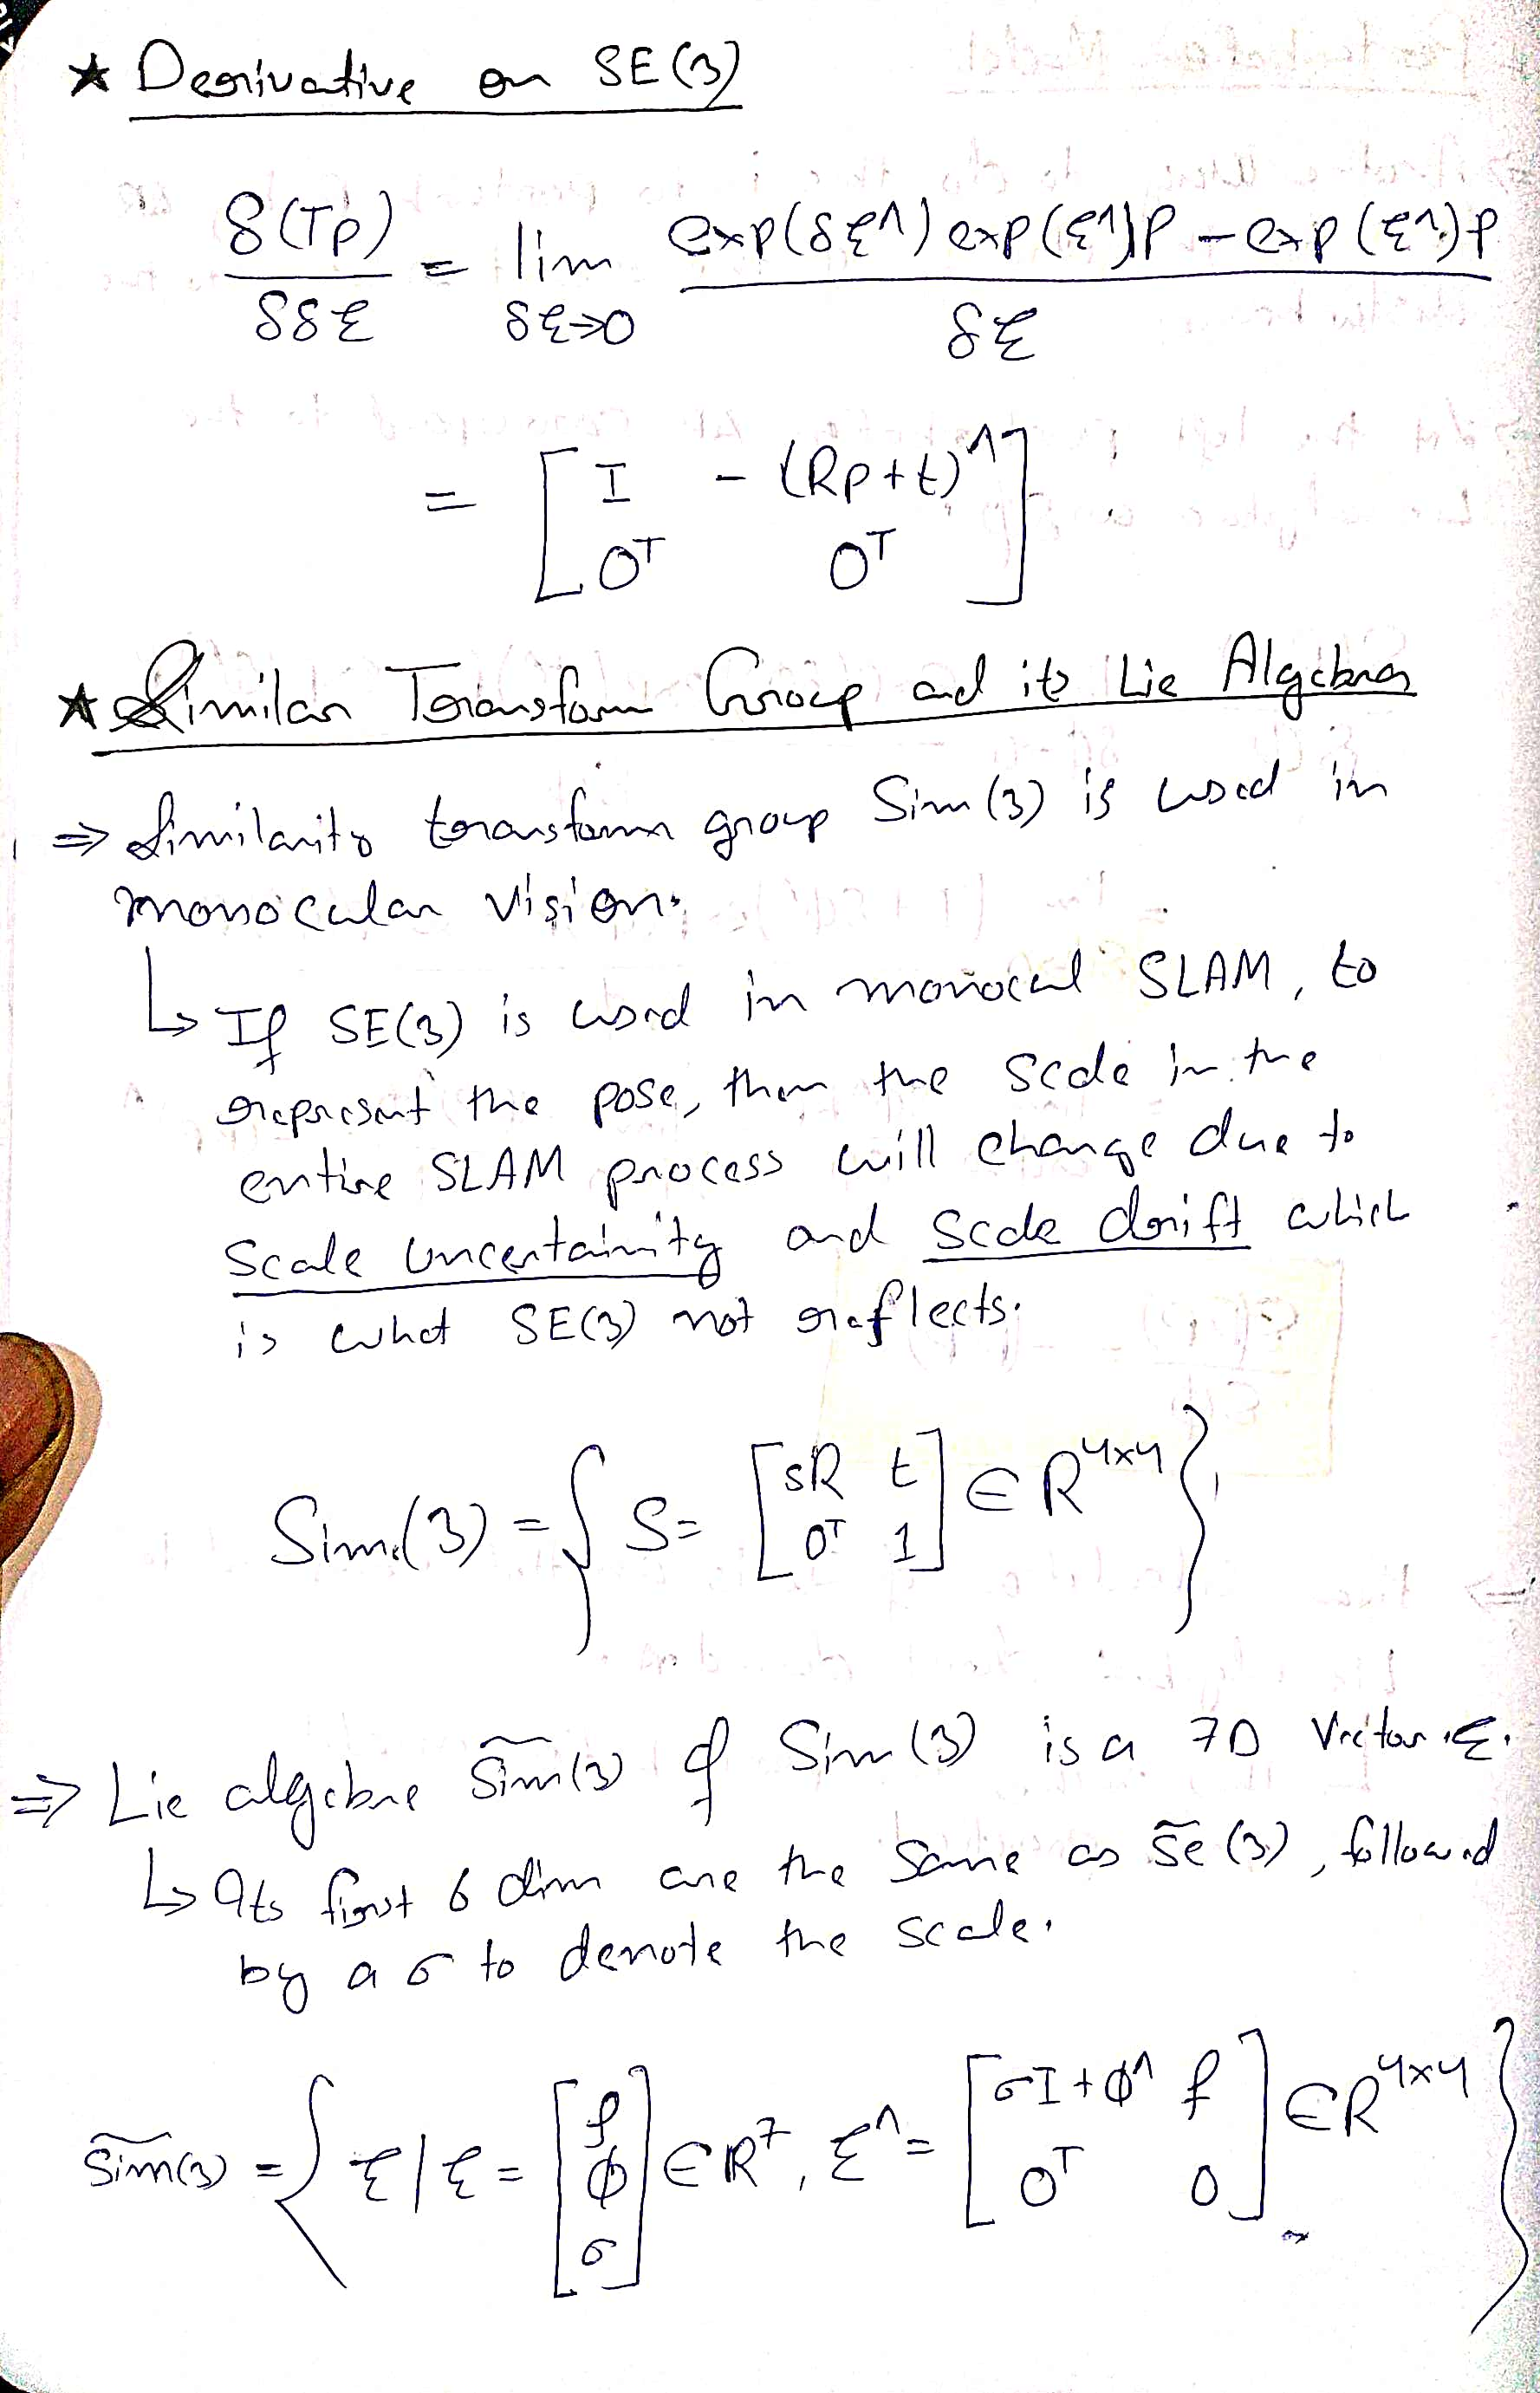 ★ Derivative on SE(3)
δ(Tp)/δδξ = lim δξ→0 (exp(δξ^) exp(ξ^)p - exp(ξ^)p)/δξ
= [I -(Rp+t)^; 0ᵀ 0ᵀ]
★ Similar Transform Group and its Lie Algebra
⇒ Similarity transform group Sim(3) is used in
monocular vision.
↳ If SE(3) is used in monocul SLAM, to
represent the pose, then the scale in the
entire SLAM process will change due to
scale uncertainity and scale drift which
is what SE(3) not reflects.
Sim(3) = { S = [sR t; 0ᵀ 1] ∈ R⁴ˣ⁴ }
⇒ Lie algebra sim(3) of Sim(3) is a 7D Vector ξ.
↳ Its first 6 dim are the same as se(3), followed
by a σ to denote the scale.
sim(3) = { ξ | ξ = [ρ; ϕ; σ] ∈ R⁷, ξ^ = [σI+ϕ^ ρ; 0ᵀ 0] ∈ R⁴ˣ⁴ }